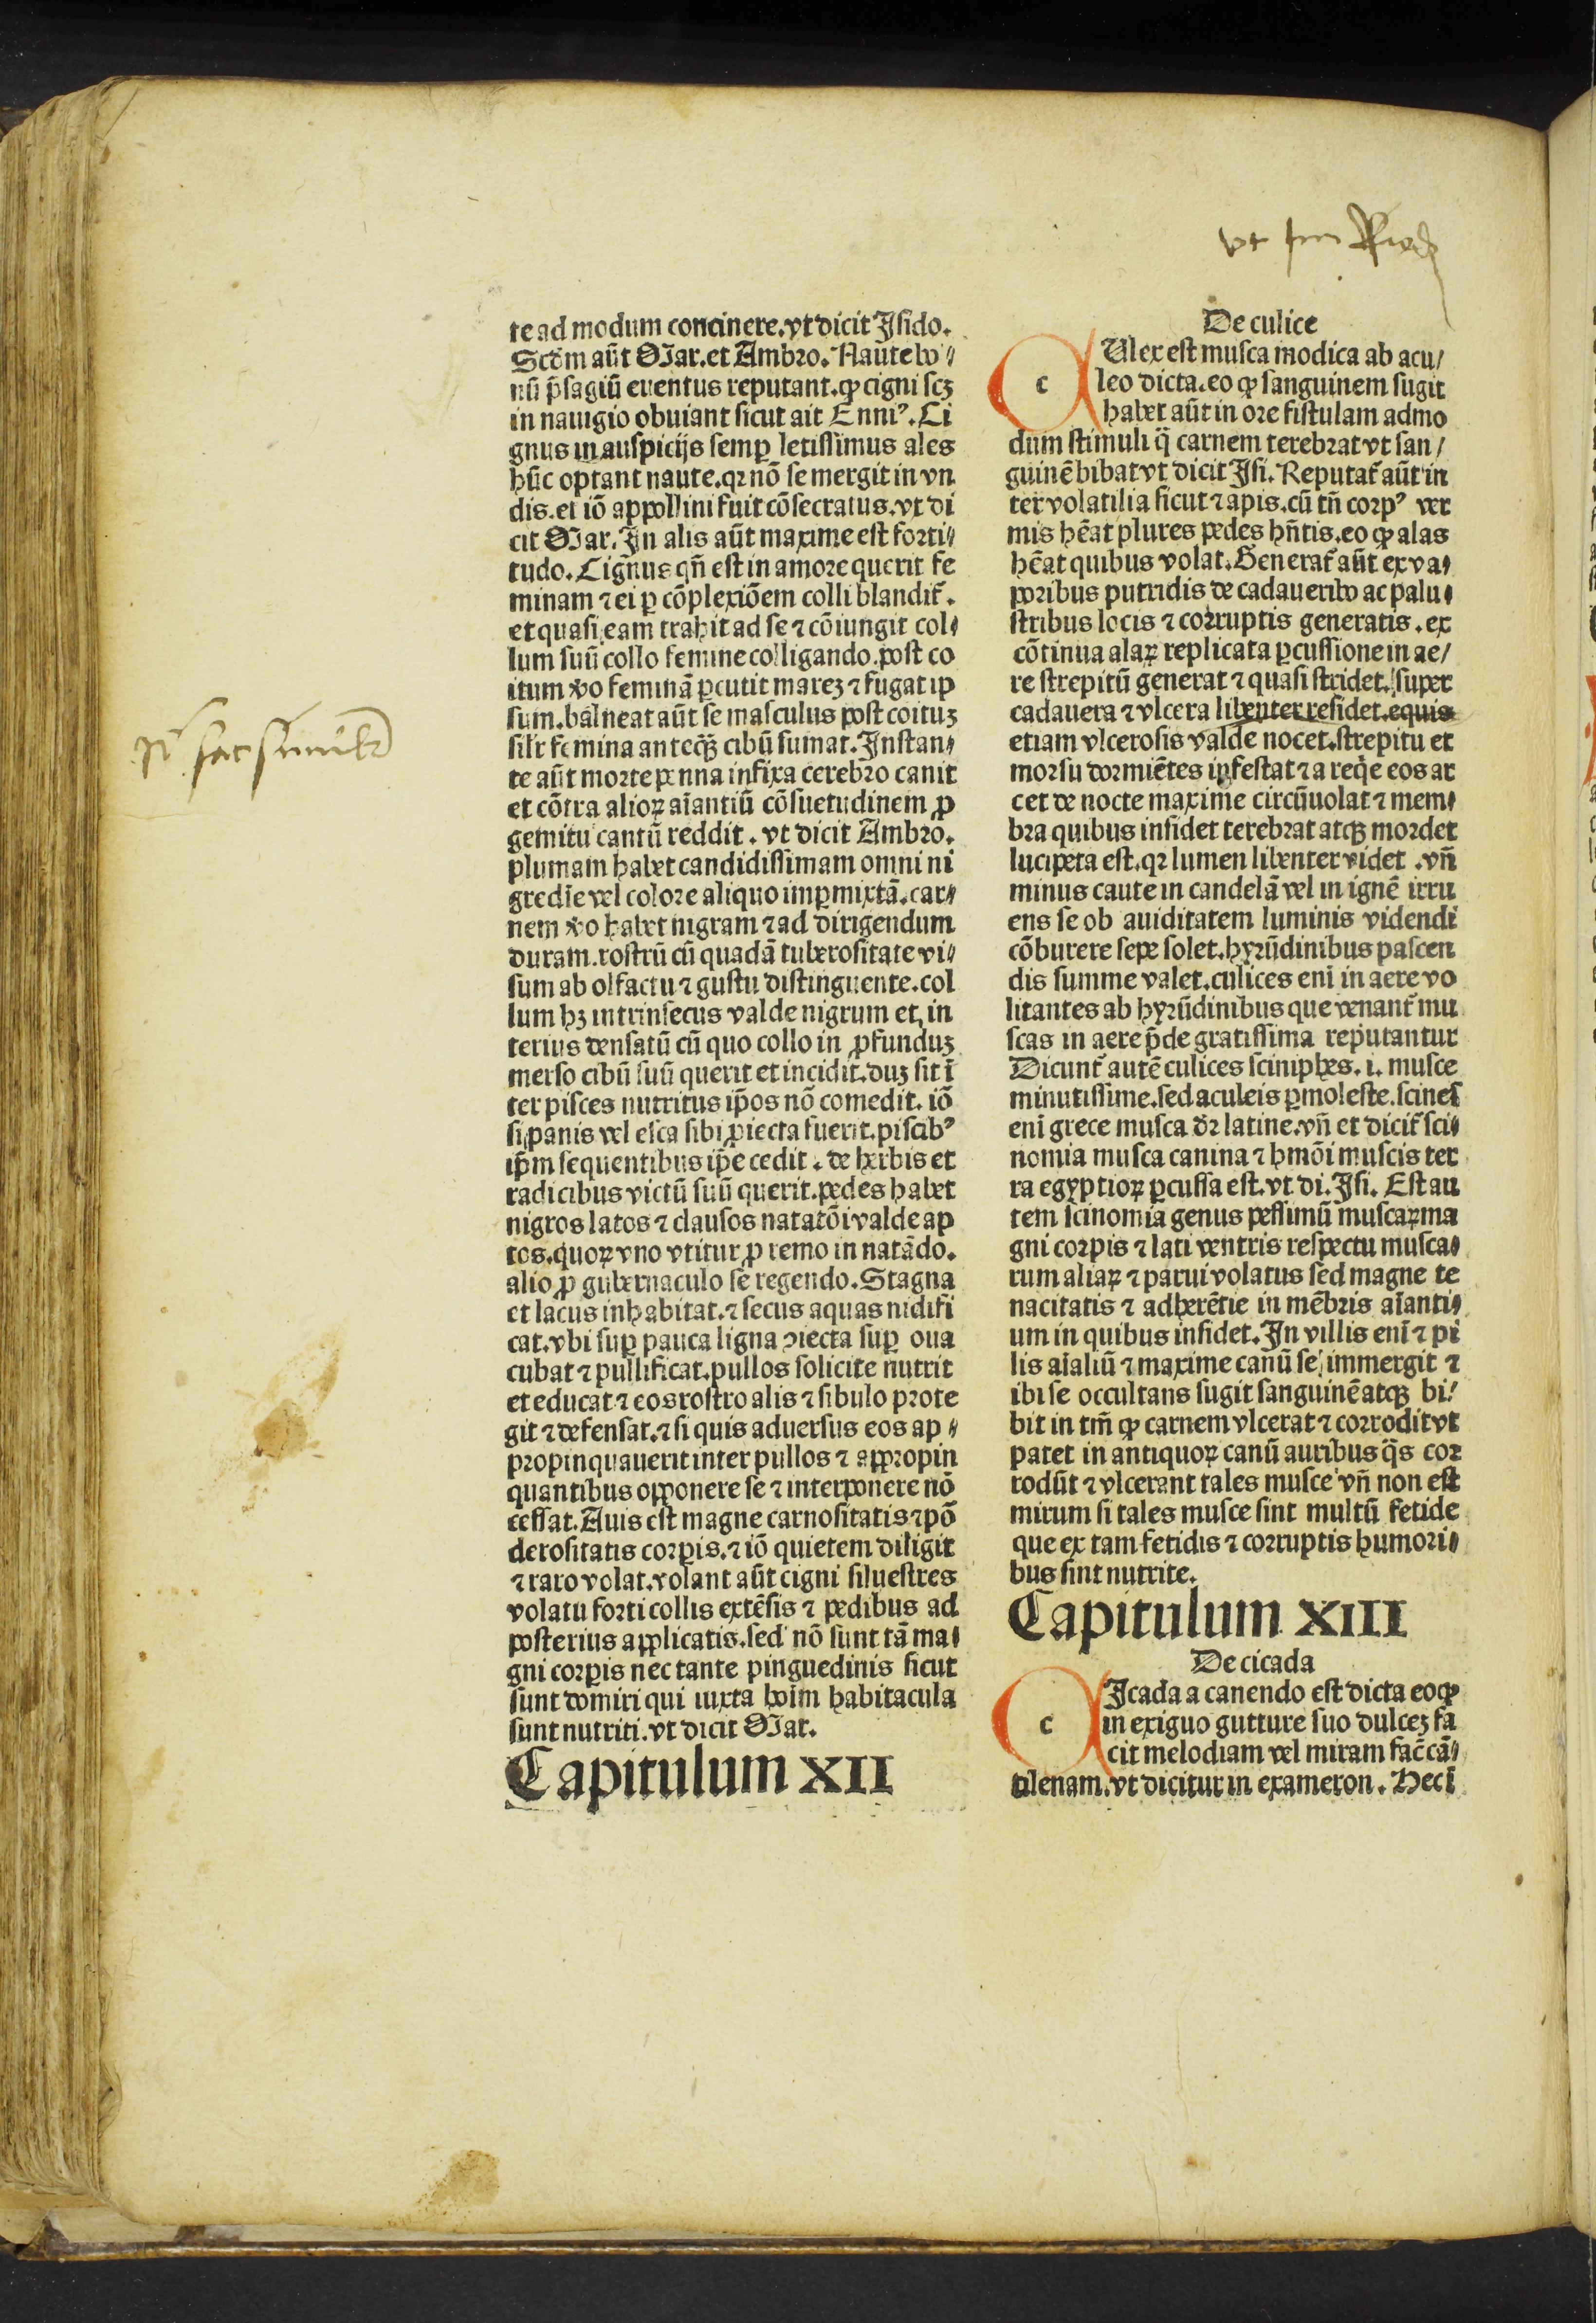 te ad modum concinere.vt dicit Isido.
Scd̄m aūt Mar.et Ambro. Naute bo⸗
nū p̄sagiū euentus reputant.ꝙ cigni scꝫ
in nauigio obuiant sicut ait Enniꝰ. Ci
gnus in auspicijs semꝑ letissimus ales
hūc optant naute.qꝛ nō se mergit in vn
dis.et iō appollini fuit cōsecratus.vt di
cit Mar. In alis aūt maxime est forti⸗
tudo. Cignus qn̄ est in amore querit fe
minam ⁊ ei ꝑ cōplexiōem colli blandit᷑.
et quasi eam trahit ad se ⁊ cōiungit col⸗
lum suū collo femine colligando.post co
itum v̄o feminā ꝑcutit mareꝫ ⁊ fugat ip
sum.balneat aūt se masculus post coituꝫ
silr̄ femina anteqꝫ cibū sumat. Instan⸗
te aūt morte penna infixa cerebro canit
et cōtra alioꝝ aīantiū cōsuetudinem ꝓ
gemitu cantū reddit. vt dicit Ambro.
plumam habet candidissimam omni ni
gredīe vel colore aliquo imꝑmixtā.car⸗
nem v̄o habet nigram ⁊ ad dirigendum
duram.rostrū cū quadā tuberositate vi⸗
sum ab olfactu ⁊ gustu distinguente.col
lum hꝫ intrinsecus valde nigrum et in
terius densatū cū quo collo in ꝓfunduꝫ
merso cibū suū querit et incidit.duꝫ sit ī
ter pisces nutritus ip̄os nō comedit. iō
si panis vel esca sibi ꝓiecta fuerit.piscibꝰ
ip̄m sequentibus ip̄e cedit. de herbis et
radicibus victū suū querit.pedes habet
nigros latos ⁊ clausos natatōi valde ap
tos.quoꝝ vno vtitur ꝓ remo in natādo.
alio ꝓ gubernaculo se regendo. Stagna
et lacus inhabitat.⁊ secus aquas nidifi
cat.vbi suꝑ pauca ligna ꝯiecta suꝑ oua
cubat ⁊ pullificat.pullos solicite nutrit
et educat ⁊ eos rostro alis ⁊ sibulo prote
git ⁊ defensat.⁊ si quis aduersus eos ap⸗
propinquauerit inter pullos ⁊ appropin
quantibus opponere se ⁊ interponere nō
cessat. Auis est magne carnositatis ⁊ pō
derositatis corꝑis.⁊ iō quietem diligit
⁊ raro volat.volant aūt cigni siluestres
volatu forti collis extēsis ⁊ pedibus ad
posterius applicatis.sed nō sunt tā ma⸗
gni corꝑis nec tante pinguedinis sicut
sunt domiri qui iuxta hoīm habitacula
sunt nutriti.vt dicit Mar.
Capitulum XII
De culice
c Ulex est musca modica ab acu/
leo dicta.eo ꝙ sanguinem sugit
habet aūt in ore fistulam admo
dum stimuli q̄ carnem terebrat vt san/
guinē bibat vt dicit Isi. Reputat᷑ aūt in
ter volatilia sicut ⁊ apis.cū tn̄ corpꝰ ver
mis hēat plures pedes hn̄tis.eo ꝙ alas
hēat quibus volat. Generat᷑ aūt ex va⸗
poribus putridis de cadaueribꝰ ac palu⸗
stribus locis ⁊ corruptis generatis.ex
cōtinua alaꝝ replicata ꝑcussione in ae/
re strepitū generat ⁊ quasi stridet. super
cadauera ⁊ vlcera libenter residet.equis
etiam vlcerosis valde nocet.strepitu et
morsu dormiētes infestat ⁊ a req̄e eos ar
cet de nocte maxime circūuolat ⁊ mem⸗
bra quibus insidet terebrat atqꝫ mordet
lucipeta est.qꝛ lumen libenter videt .vn̄
minus caute in candelā vel in ignē irru
ens se ob auiditatem luminis videndi
cōburere sepe solet.hyrūdinibus pascen
dis summe valet.culices eni in aere vo
litantes ab hyrūdinibus que venant᷑ mu
scas in aere p̄de gratissima reputantur
Dicunt᷑ autē culices sciniphes. i. musce
minutissime.sed aculeis ꝑmoleste.scines
eni grece musca dr̄ latine.vn̄ et dicit᷑ sci⸗
nomia musca canina ⁊ hmōi muscis ter
ra egyptioꝝ ꝑcussa est.vt di. Isi. Est au
tem scinomia genus pessimū muscaꝝ ma
gni corpis ⁊ lati ventris respectu musca⸗
rum aliaꝝ ⁊ parui volatus sed magne te
nacitatis ⁊ adherētie in mēbris aīanti⸗
um in quibus insidet. In villis enī ⁊ pi
lis aīaliū ⁊ maxime canū se immergit ⁊
ibi se occultans sugit sanguinē atqꝫ bi/
bit in tm̄ ꝙ carnem vlcerat ⁊ corrodit vt
patet in antiquoꝝ canū auribus q̄s cor
rodūt ⁊ vlcerant tales musce vn̄ non est
mirum si tales musce sint multū fetide
que ex tam fetidis ⁊ corruptis humori⸗
bus sint nutrite.
Capitulum XIII
De cicada
c Icada a canendo est dicta eo ꝙ
in exiguo gutture suo dulceꝫ fa
cit melodiam vel miram fac̄ cā⸗
tilenam.vt dicitur in exameron. Hec ī